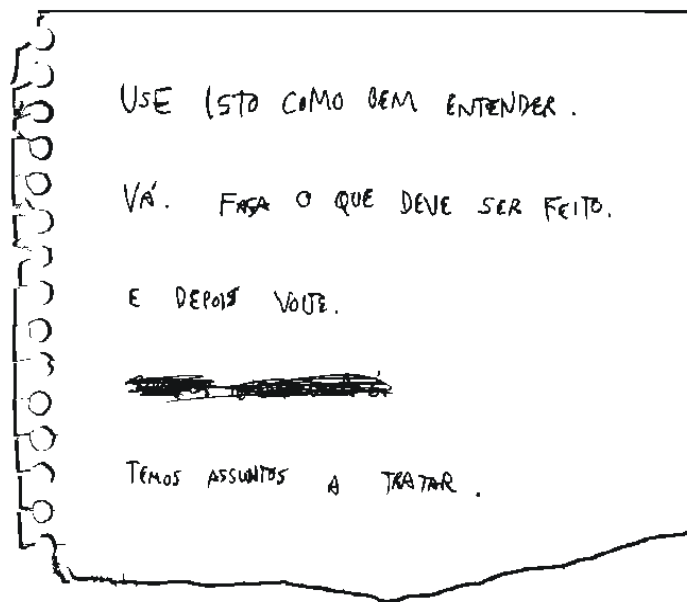 USE ISTO COMO BEM ENTENDER.
VÁ. FAÇA O QUE DEVE SER FEITO.
E DEPOIS VOLTE.
TEMOS ASSUNTOS A TRATAR.